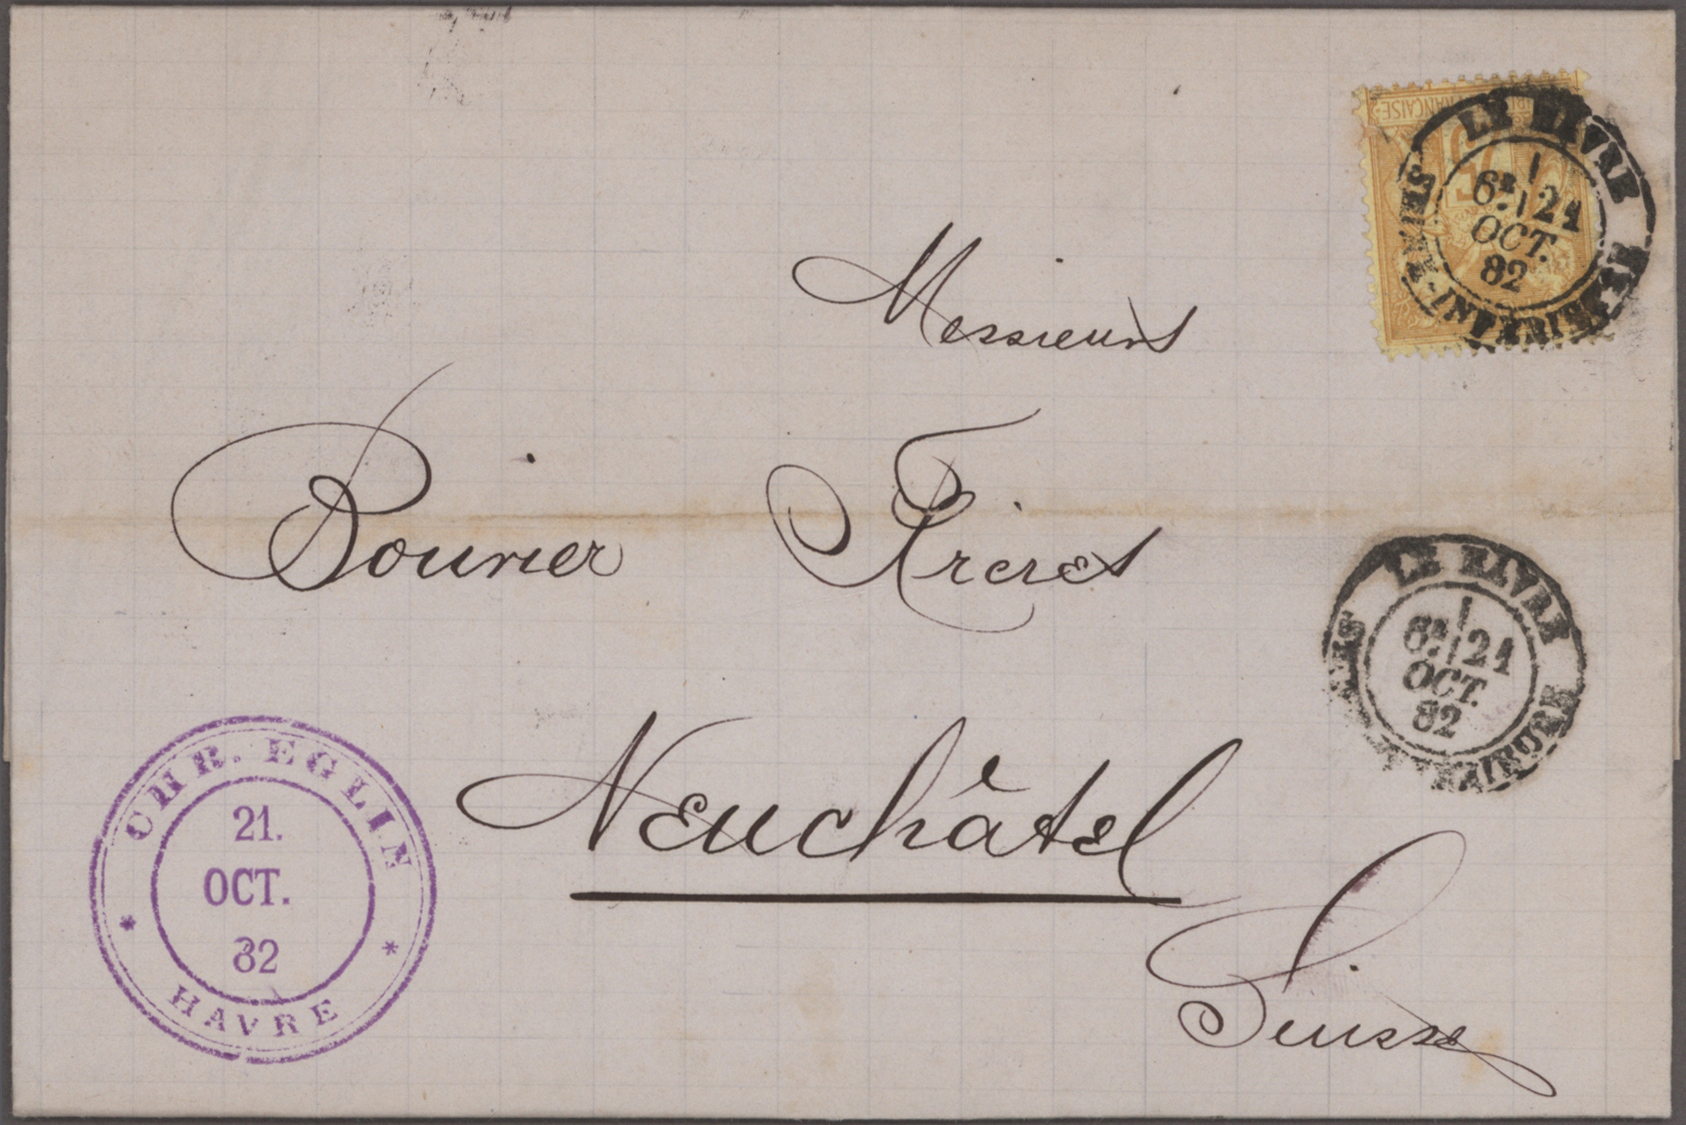 Messieurs
Bouvier Frères
Neuchâtel
Suisse
FRANÇAISE
LE HAVRE
6E 21
OCT.
82
SEINE-INFÉRIEURE
LE HAVRE
6E 21
OCT.
82
CHR. EGLIN
21.
OCT.
82
* HAVRE *